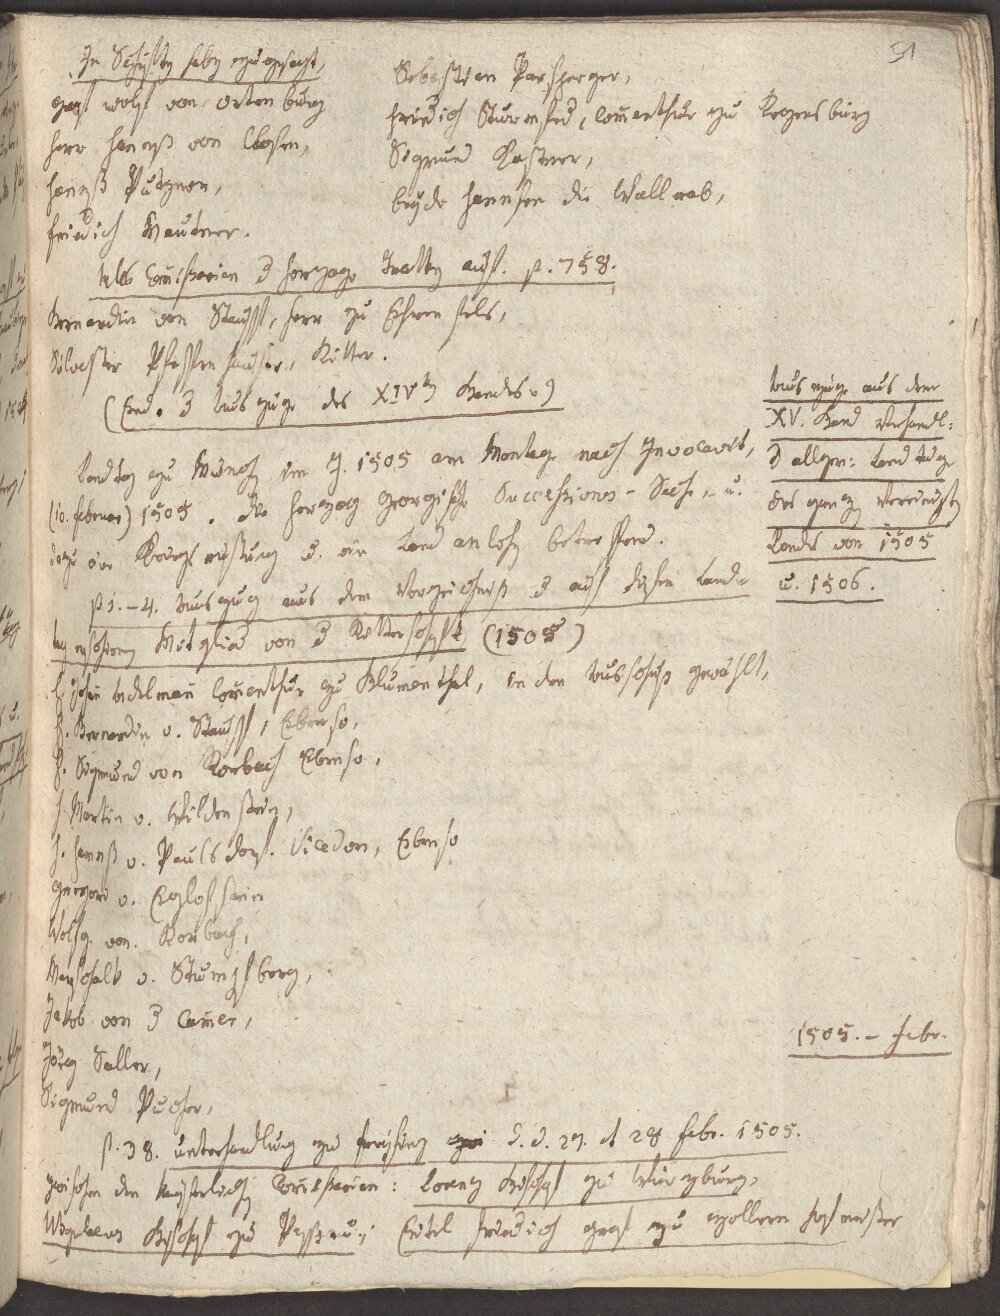 51
In Schriften haben zugesagt,
graf wolf von Ortenburg
herr hannß von Closen,
hannß Putzner,
friedrich Mautner.
Sebastian Parsperger,
friedrich Sturmfed, Com̄enthur zu Regensburg
Sigmund Kastner,
beyde hannsen die Wallrab,
Als Com̄issarien d herzogs auf. p. 758.
Bernardin von Stauff, herr zu Ehrenfels,
Silvester Pfeffenhauser, Ritter.
(End. d Auszüge des XIVten Bandes.)
Auszüge aus dem
XV. Band Verhandl:
d allgem: Landtäge
des ganzen vereinigten
Landes von 1505
u. 1506.
Landtag zu Münch im J. 1505 am Montage nach Invocavit,
(10. februar) 1505. die herzog georgische Successions-Sache, u.
dazu die Kriegsrüstung u. ein Landanlehen betreffend.
p 1.-4. Auszug aus dem Verzeichniß d auf diesen Land-
tag erschienen Mitglied von d Ritterschaft (1505)
H. Com̄enthur zu Blumenthal, in den Ausschuß gewählt,
H. Bernardin v. Stauff, Ebenso,
H. Sigmund von Rorbach Ebenso,
H. Martin v. Wildenstein,
H. hannß v. Paulsdorf. Vicedom, Ebenso
Gregori v. Egloffstein
Wolfg. von Rorbach,
Marschalk v. Stumpfsberg,
Jakob von d Cam̄er,
Jörg Saller,
Sigmund Pucher,
1505. - febr.
p. 38. unterhandlung zu freysing d. d. 27. et 28 febr. 1505.
zwischen den kayserlichen Com̄issarien: Lorenz Bischof zu Würzburg,
Wigileus Bischof zu Passau; Eitel friedrich graf zu zollern hofmeister